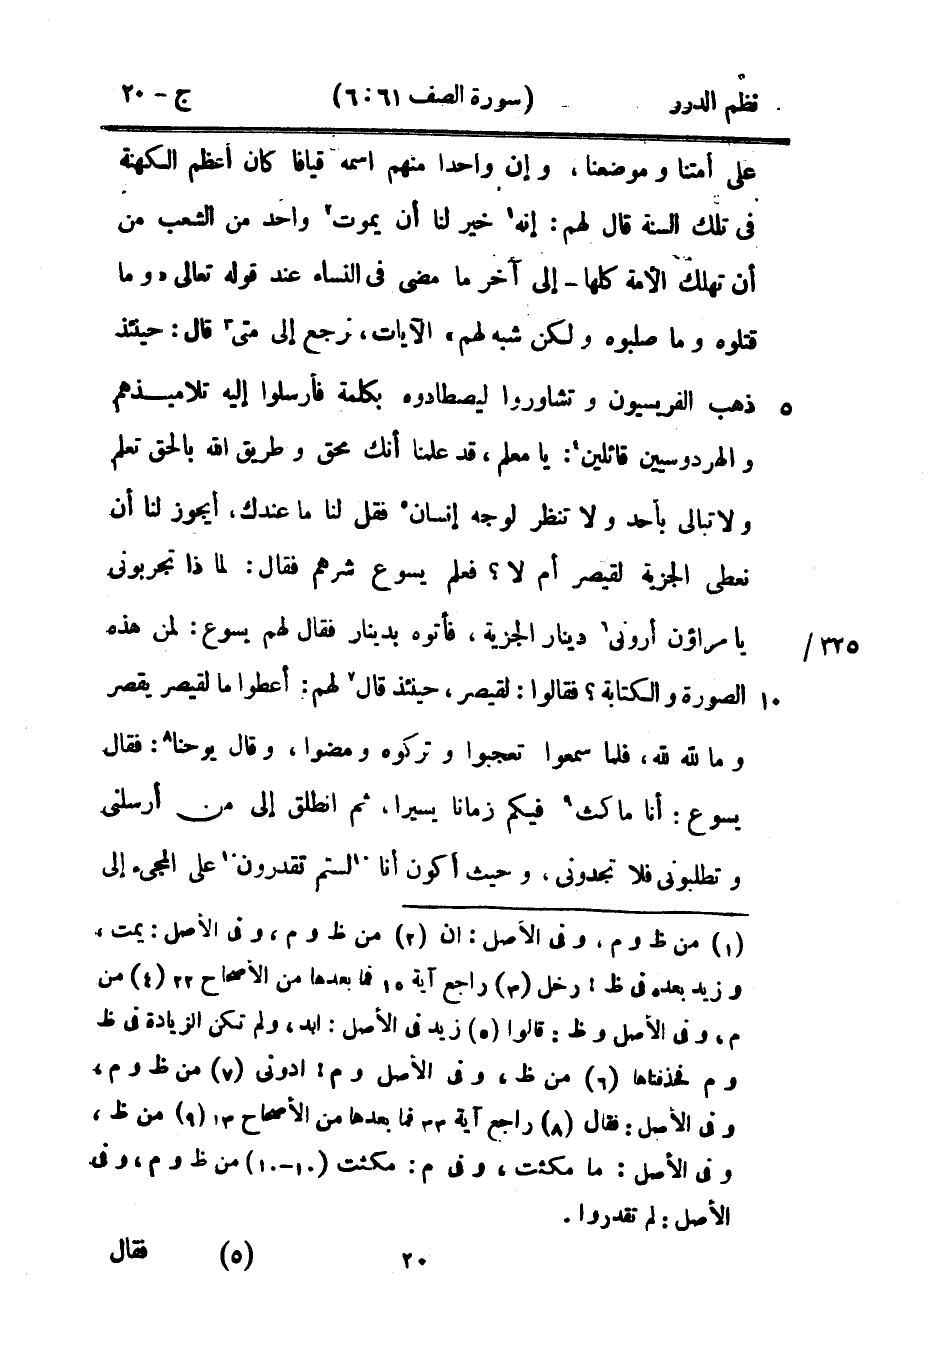 نظم الدرر (سورة الصف ٦١ : ٦) ج - ٢٠
على أمتنا و موضعنا ، و إن واحدا منهم اسمه قيافا كان أعظم الكهنة
فى تلك السنة قال لهم : إنه١ خير لنا أن يموت٢ واحد من الشعب من
أن تهلك الأمة كلها - إلى آخر ما مضى فى النساء عند قوله تعالى « و ما
قتلوه و ما صلبوه و لكن شبه لهم » الآيات ، نرجع إلى متى٣ قال : حينئذ
٥ ذهب الفريسيون و تشاوروا ليصطادوه بكلمة فأرسلوا إليه تلاميذهم
و الهردوسيين قائلين٤ : يا معلم ، قد علمنا أنك محق و طريق الله بالحق تعلم
و لا تبالى بأحد و لا تنظر لوجه إنسان٥ فقل لنا ما عندك ، أيجوز لنا أن
نعطى الجزية لقيصر أم لا ؟ فعلم يسوع شرهم فقال : لما ذا تجربونى
٣٢٥/ يا مراؤن أرونى٦ دينار الجزية ، فأتوه بدينار فقال لهم يسوع : لمن هذه
١٠ الصورة و الكتابة ؟ فقالوا : لقيصر ، حينئذ قال٧ لهم : أعطوا ما لقيصر يقصر
و ما لله لله ، فلما سمعوا تعجبوا و تركوه و مضوا ، و قال يوحنا٨ : فقال
يسوع : أنا ماكث٩ فيكم زمانا يسيرا ، ثم انطلق إلى من أرسلنى
و تطلبونى فلا تجدونى ، و حيث أكون أنا ١٠لستم تقدرون١٠ على المجىء إلى
(١) من ظ و م ، و فى الأصل : ان (٢) من ظ و م ، و فى الأصل : يمت ،
و زيد بعده فى ظ : رخل (٣) راجع آية ١٥ فما بعدها من الأصحاح ٢٢ (٤) من
م ، و فى الأصل و ظ : قالوا (٥) زيد فى الأصل : ابد ، ولم تكن الزيادة فى ظ
و م فحذفناها (٦) من ظ ، و فى الأصل و م : ادونى (٧) من ظ و م ،
و فى الأصل : فقال (٨) راجع آية ٣٣ فما بعدها من الأصحاح ١٣ (٩) من ظ ،
و فى الأصل : ما مكثت ، و فى م : مكثت (١٠-١٠) من ظ و م ، و فى
الأصل : لم تقدروا .
٢٠ (٥) فقال